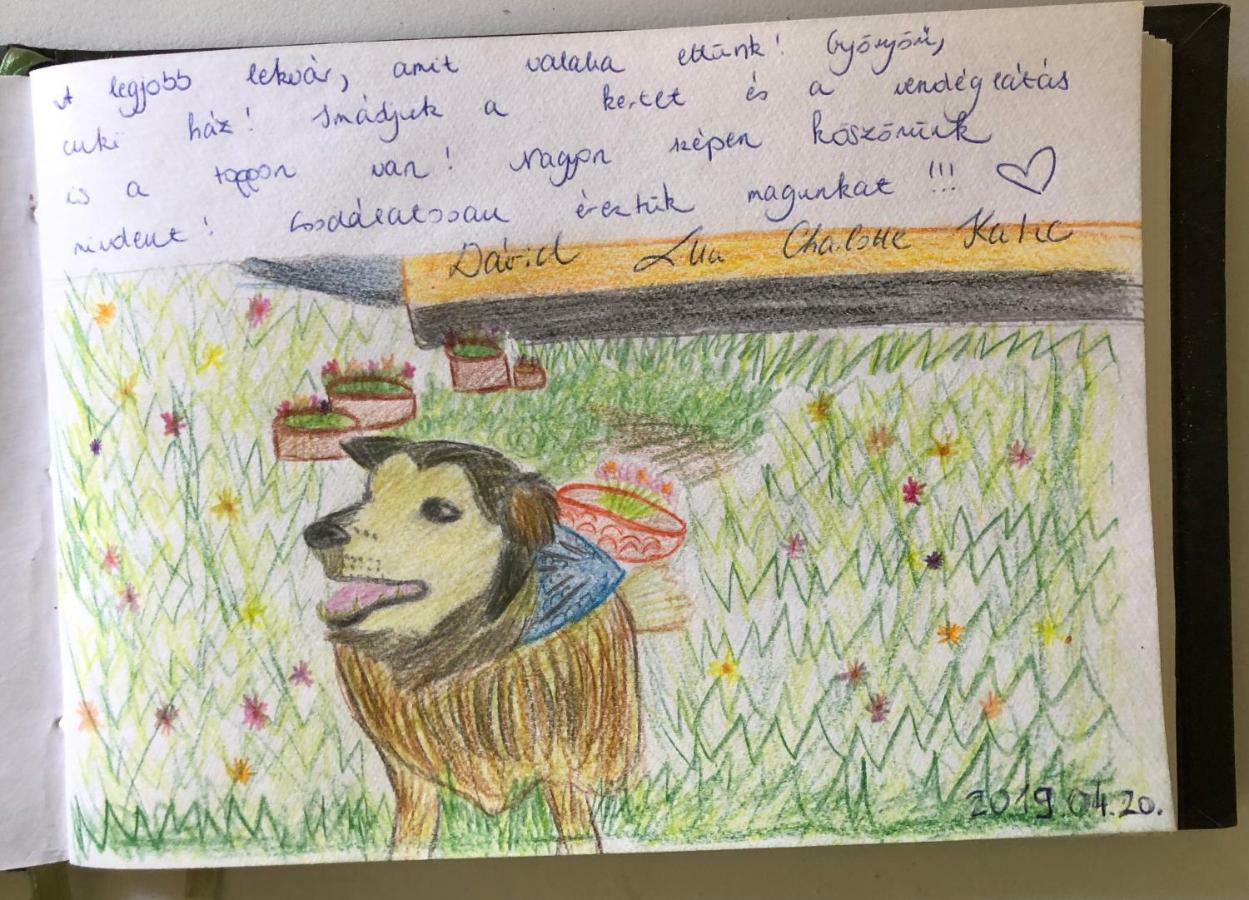 A legjobb lekvár, amit valaha ettünk! Gyönyörű,
cuki ház! Imádjuk a kertet és a vendéglátás
is a toppon van! Nagyon szépen köszönünk
mindent! Csodálatosan éreztük magunkat!!! ♡
Dávid Lilla Charlotte Katie
2019.04.20.